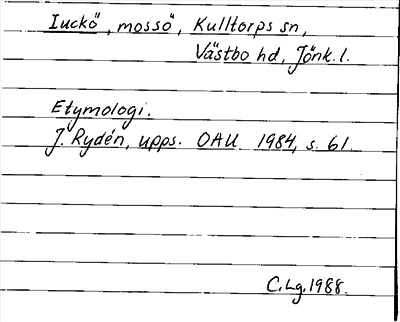 Iuckö, mossö, Kulltorps sn,
Västbo hd, Jönk. l.
Etymologi.
J. Rydén, upps. OAU 1984, s. 61.
C.Lg. 1988.